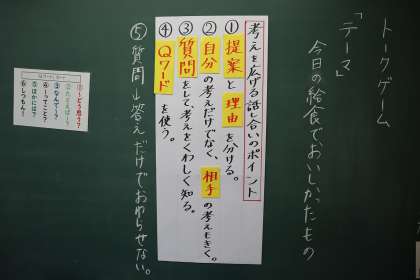 トークゲーム
「テーマ」
今日の給食でおいしかったもの
考えを広げる話し合いのポイント
①提案と理由を分ける。
②自分の考えだけでなく、相手の考えもきく。
③質問をして、考えをくわしく知る。
④Qワードを使う。
⑤質問↓答えだけでおわらせない。
①〜どう思う?
③なんで〜?
④〜ってこと?
⑤ほかには?
⑥もしも〜!